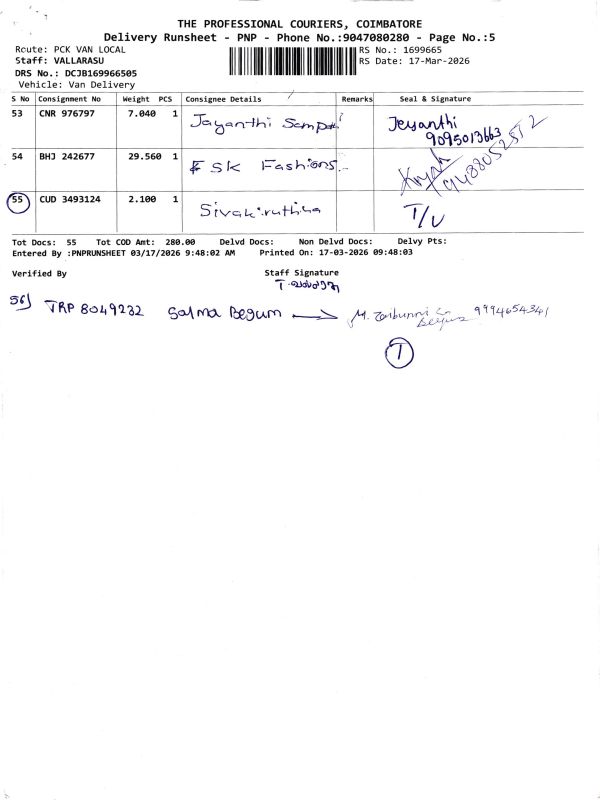 THE PROFESSIONAL COURIERS, COIMBATORE
Delivery Runsheet - PNP - Phone No.:9047080280 - Page No.:5
Route: PCK VAN LOCAL
RS No.: 1699665
Staff: VALLARASU
RS Date: 17-Mar-2026
DRS No.: DCJB169966505
Vehicle: Van Delivery
S No Consignment No Weight PCS Consignee Details Remarks Seal & Signature
53 CNR 976797 7.040 1 Jayanthi Jeyanthi
9095013663
54 BHJ 242677 29.560 1 SK Fashions
9488052572
55 CUD 3493124 2.100 1 Sivakiruthika T/V
Tot Docs: 55 Tot COD Amt: 280.00 Delvd Docs: Non Delvd Docs: Delvy Pts:
Entered By :PNPRUNSHEET 03/17/2026 9:48:02 AM Printed On: 17-03-2026 09:48:03
Verified By Staff Signature
56) TRP 8049232 Salma Begum → 9994654341
1